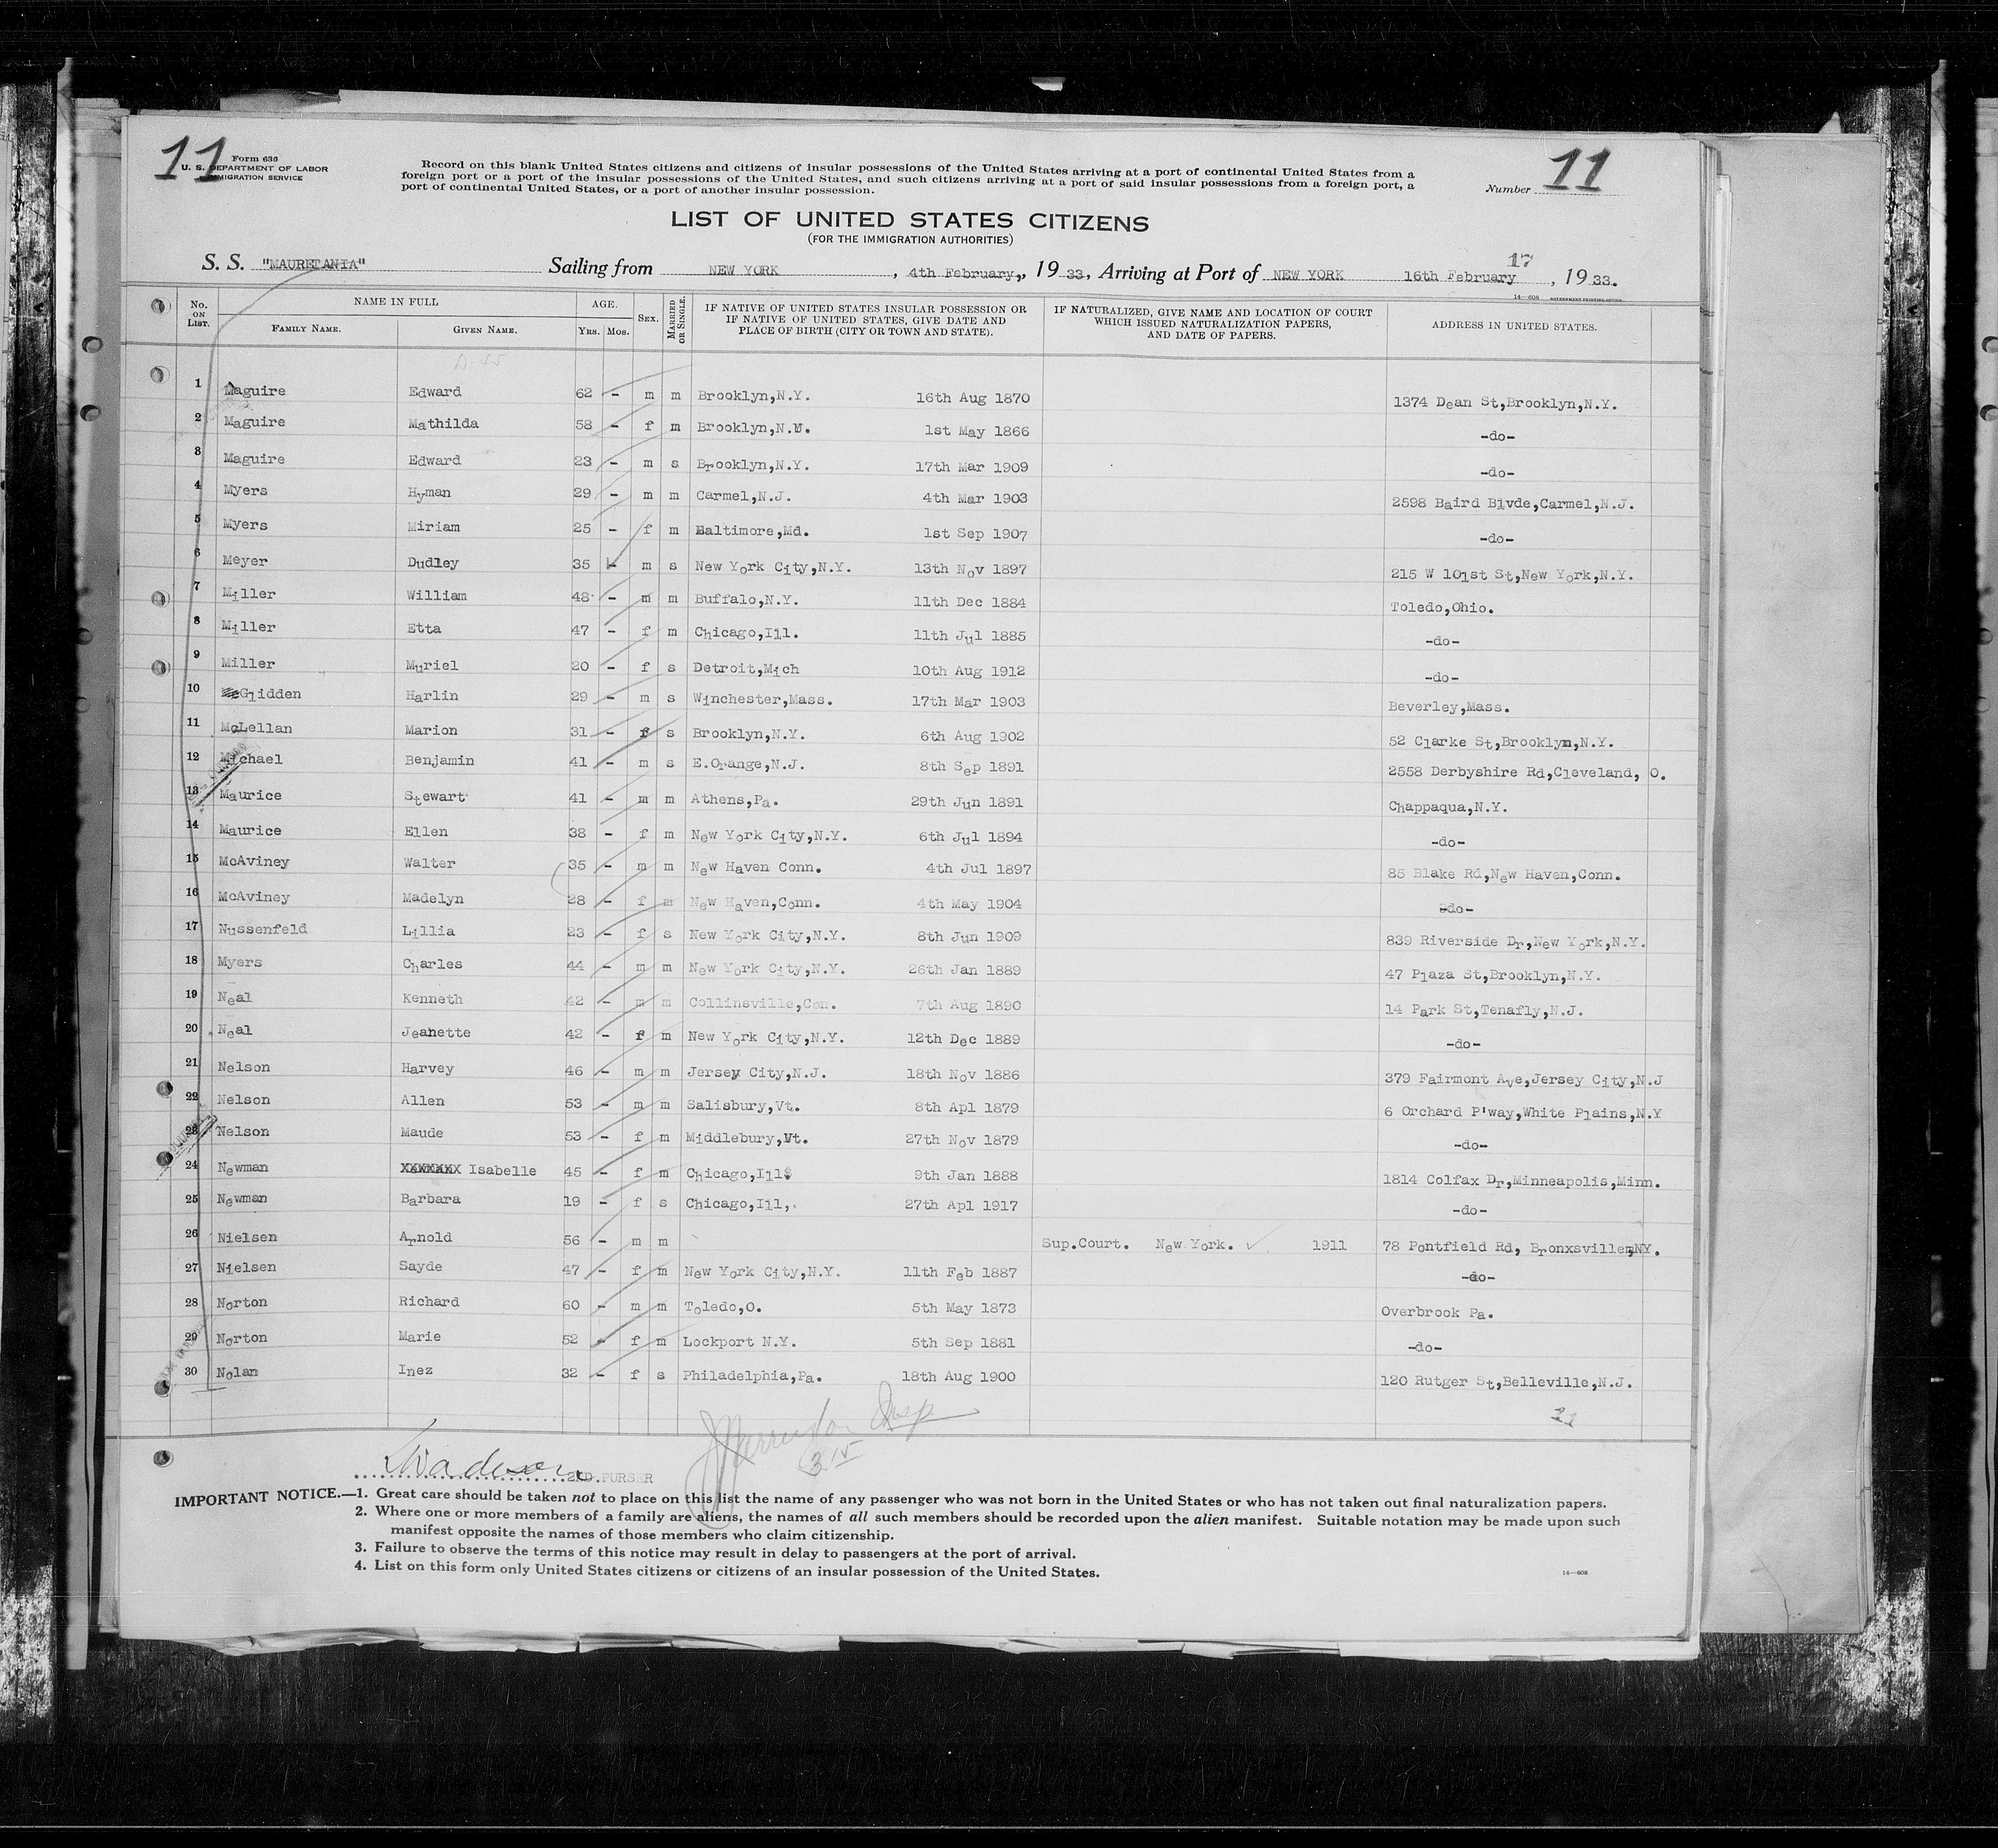 11
11
Form 630
U. S. DEPARTMENT OF LABOR
IMMIGRATION SERVICE
Record on this blank United States citizens and citizens of insular possessions of the United States arriving at a port of continental United States from a
foreign port or a port of the insular possessions of the United States, and such citizens arriving at a port of said insular possessions from a foreign port, a
port of continental United States, or a port of another insular possession.
Number
LIST OF UNITED STATES CITIZENS
(FOR THE IMMIGRATION AUTHORITIES)
17
S. S. "MAURETANIA" Sailing from NEW YORK, 4th February, 1933, Arriving at Port of NEW YORK 16th February, 1933.
14—608 GOVERNMENT PRINTING OFFICE
No. ON LIST. NAME IN FULL FAMILY NAME. GIVEN NAME. AGE. Yrs. Mos. SEX. MARRIED OR SINGLE. IF NATIVE OF UNITED STATES INSULAR POSSESSION OR IF NATIVE OF UNITED STATES, GIVE DATE AND PLACE OF BIRTH (CITY OR TOWN AND STATE). IF NATURALIZED, GIVE NAME AND LOCATION OF COURT WHICH ISSUED NATURALIZATION PAPERS, AND DATE OF PAPERS. ADDRESS IN UNITED STATES.
D-45
1 Maguire Edward 62 - m m Brooklyn,N.Y. 16th Aug 1870 1374 Dean St,Brooklyn,N.Y.
2 Maguire Mathilda 58 - f m Brooklyn,N.Y. 1st May 1866 -do-
3 Maguire Edward 23 - m s Brooklyn,N.Y. 17th Mar 1909 -do-
4 Myers Hyman 29 - m m Carmel,N.J. 4th Mar 1903 2598 Baird Blvde,Carmel,N.J.
5 Myers Miriam 25 - f m Baltimore,Md. 1st Sep 1907 -do-
6 Meyer Dudley 35 - m s New York City,N.Y. 13th Nov 1897 215 W 101st St,New York,N.Y.
7 Miller William 48 - m m Buffalo,N.Y. 11th Dec 1884 Toledo,Ohio.
8 Miller Etta 47 - f m Chicago,Ill. 11th Jul 1885 -do-
9 Miller Muriel 20 - f s Detroit,Mich 10th Aug 1912 -do-
10 Glidden Harlin 29 - m s Winchester,Mass. 17th Mar 1903 Beverley,Mass.
11 McLellan Marion 31 - f s Brooklyn,N.Y. 6th Aug 1902 52 Clarke St,Brooklyn,N.Y.
12 Michael Benjamin 41 - m s E.Orange,N.J. 8th Sep 1891 2558 Derbyshire Rd,Cleveland, O.
13 Maurice Stewart 41 - m m Athens,Pa. 29th Jun 1891 Chappaqua,N.Y.
14 Maurice Ellen 38 - f m New York City,N.Y. 6th Jul 1894 -do-
15 McAviney Walter 35 - m m New Haven Conn. 4th Jul 1897 85 Blake Rd,New Haven,Conn.
16 McAviney Madelyn 28 - f m New Haven,Conn. 4th May 1904 -do-
17 Nussenfeld Lillia 23 - f s New York City,N.Y. 8th Jun 1909 839 Riverside Dr,New York,N.Y.
18 Myers Charles 44 - m m New York City,N.Y. 26th Jan 1889 47 Plaza St,Brooklyn,N.Y.
19 Neal Kenneth 42 - m m Collinsville,Con. 7th Aug 1890 14 Park St,Tenafly,N.J.
20 Neal Jeanette 42 - f m New York City,N.Y. 12th Dec 1889 -do-
21 Nelson Harvey 46 - m m Jersey City,N.J. 18th Nov 1886 379 Fairmont Ave,Jersey City,N.J
22 Nelson Allen 53 - m m Salisbury,Vt. 8th Apl 1879 6 Orchard P'way,White Plains,N.Y
23 Nelson Maude 53 - f m Middlebury,Vt. 27th Nov 1879 -do-
24 Newman XXXXXXX Isabelle 45 - f m Chicago,Ill. 9th Jan 1888 1814 Colfax Dr,Minneapolis,Minn.
25 Newman Barbara 19 - f s Chicago,Ill,. 27th Apl 1917 -do-
26 Nielsen Arnold 56 - m m Sup.Court. New York. 1911 78 Pontfield Rd, Bronxsville,NY.
27 Nielsen Sayde 47 - f m New York City,N.Y. 11th Feb 1887 -do-
28 Norton Richard 60 - m m Toledo,O. 5th May 1873 Overbrook Pa.
29 Norton Marie 52 - f m Lockport N.Y. 5th Sep 1881 -do-
30 Nolan Inez 32 - f s Philadelphia,Pa. 18th Aug 1900 120 Rutger St,Belleville,N.J.
11
2ND. PURSER
IMPORTANT NOTICE.—1. Great care should be taken not to place on this list the name of any passenger who was not born in the United States or who has not taken out final naturalization papers.
2. Where one or more members of a family are aliens, the names of all such members should be recorded upon the alien manifest. Suitable notation may be made upon such
manifest opposite the names of those members who claim citizenship.
3. Failure to observe the terms of this notice may result in delay to passengers at the port of arrival.
4. List on this form only United States citizens or citizens of an insular possession of the United States.
14—608